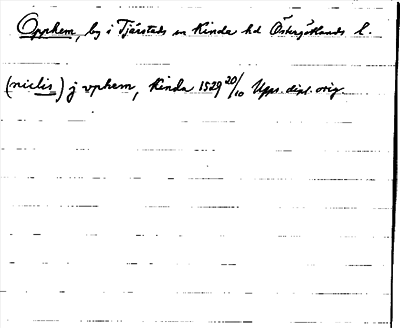 Opphem, by i Tjärstads sn Kinda hd Östergötlands l.
(nielis) j vphem, Kinda 1529 20/10 Upps. dipl. orig.